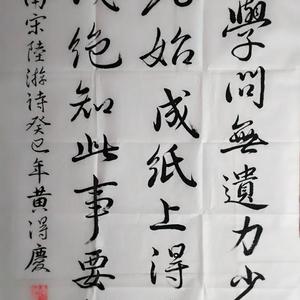 學問無遺力少
始成紙上得
絶知此事要
南宋陸游詩癸巳年黃得慶